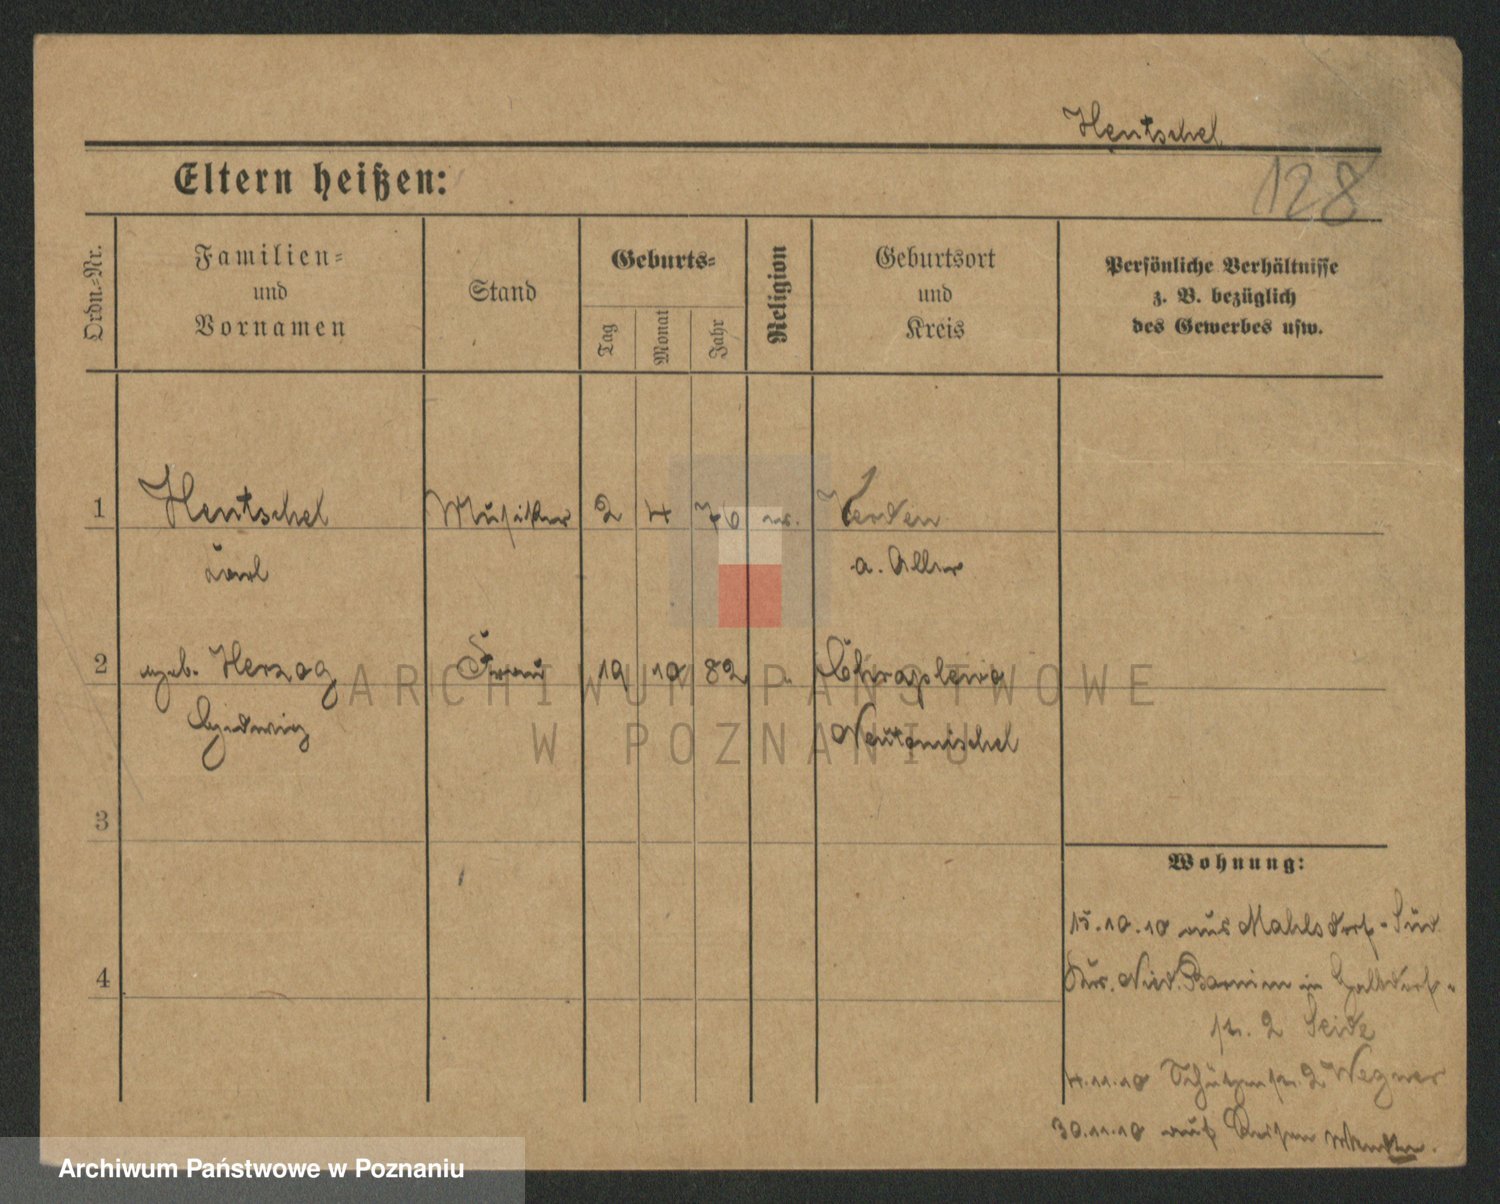 Hentschel
128
Eltern heißen:
Ordn.-Nr.
Familien- und Vornamen
Stand
Geburts-
Tag
Monat
Jahr
Religion
Geburtsort und Kreis
Persönliche Verhältnisse
z. B. bezüglich
des Gewerbes usw.
1 Hentschel Musiker 2 4 76 ev. Verden
Karl a. Aller
2 geb. Herzog Frau 19 10 82
Hedwig Neutomischel
3
4
Wohnung:
15.10.10 aus Mahlsdorf-Süd
Nied. Barnim in
str. 2 Seide
4.11.10 Schützenstr. 2 Wegner
30.11.10 auf Reisen
ARCHIWUM PAŃSTWOWE
W POZNANIU
Archiwum Państwowe w Poznaniu